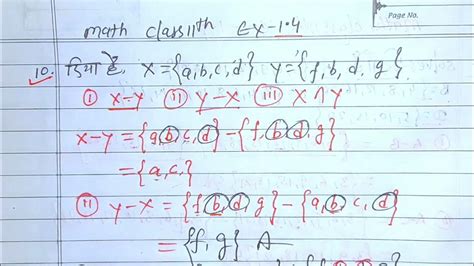 Page No.
math class 11th Ex-1.4
10. दिया है, X={a,b,c,d} Y={f,b,d,g}
(i) X-Y (ii) Y-X (iii) X∩Y
X-Y={a,b,c,d}-{f,b,d,g}
={a,c,}
(ii) Y-X={f,b,d,g}-{a,b,c,d}
={f,g} A